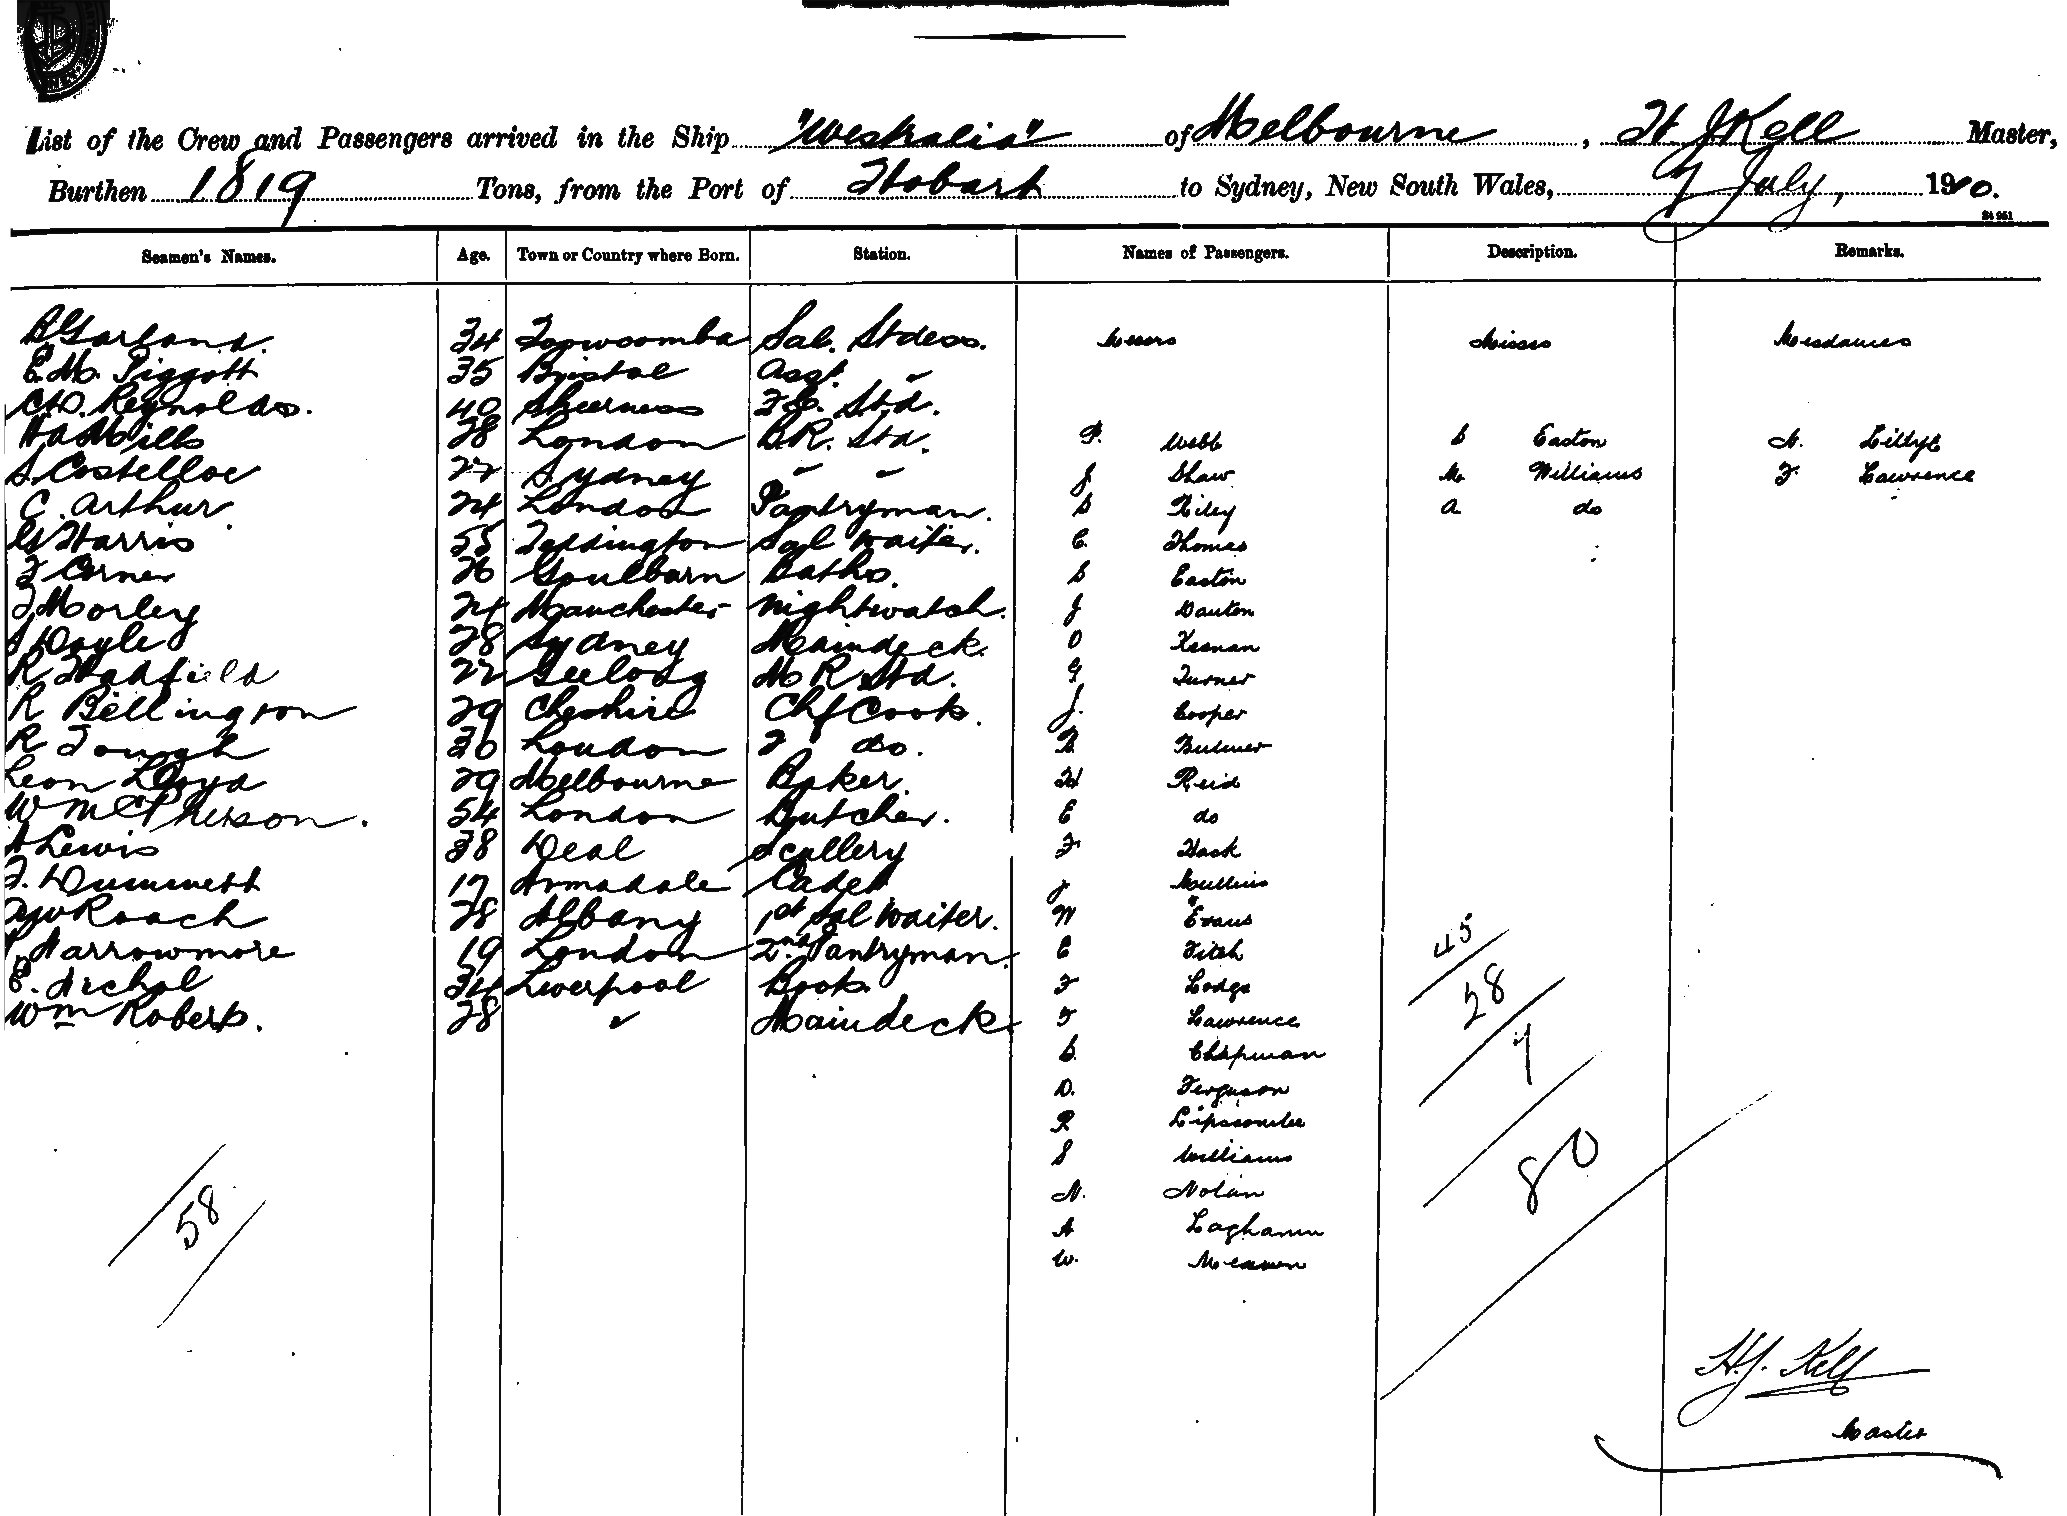 List of the Crew and Passengers arrived in the Ship "Westralia" of Melbourne, H J Kell Master,
Burthen 1819 Tons, from the Port of Hobart to Sydney, New South Wales, 7 July, 1910.
Seamen's Names. Age. Town or Country where Born. Station. Names of Passengers. Description. Remarks.
B Garland. 34 Toowoomba Sal. Stdess. Messrs Misses Mesdames
E. M. Piggott 35 Bristol Asst. "
Reynolds. 40 Sheerness Std.
H A Mills 28 London B.R. Std. P. Webb S Easton A. Lillye
S Costelloe 22 Sydney " " J. Shaw M. Williams F. Lawrence
C. Arthur 24 London Pantryman. S Riley A do
G Harris 55 Teddington Sal Waiter. C. Thomas
F Corner 26 Goulburn Baths. S Easton
T Morley 24 Manchester Nightwatch. J Danton
J Doyle 28 Sydney Maindeck. O Keenan
R Hadfield 22 Geelong M R Std. G Turner
R Bellington 29 Cheshire Chf Cook. J. Cooper
R Tough 30 London 2 do. B Bulmer
Leon Lloyd 29 Melbourne Baker. H Reid
W McPherson. 54 London Butcher. E do
A Lewis 38 Deal Scullery F. Hask
F. Dummett 17 Armadale Cadet J. Mullins
Roach 28 Albany 1st Sal Waiter. W Evans
Narrowmore 19 London 2nd Pantryman. C Fitch
E. Archol 34 Liverpool Books. F Lodge
Wm Roberts. 28 " Maindeck. F Lawrence
S. Chapman
D. Ferguson
R Lipscombe
S Williams
N. Nolan
A Laghamm
W.
45
28
7
80
58
H.J. Kell
Master